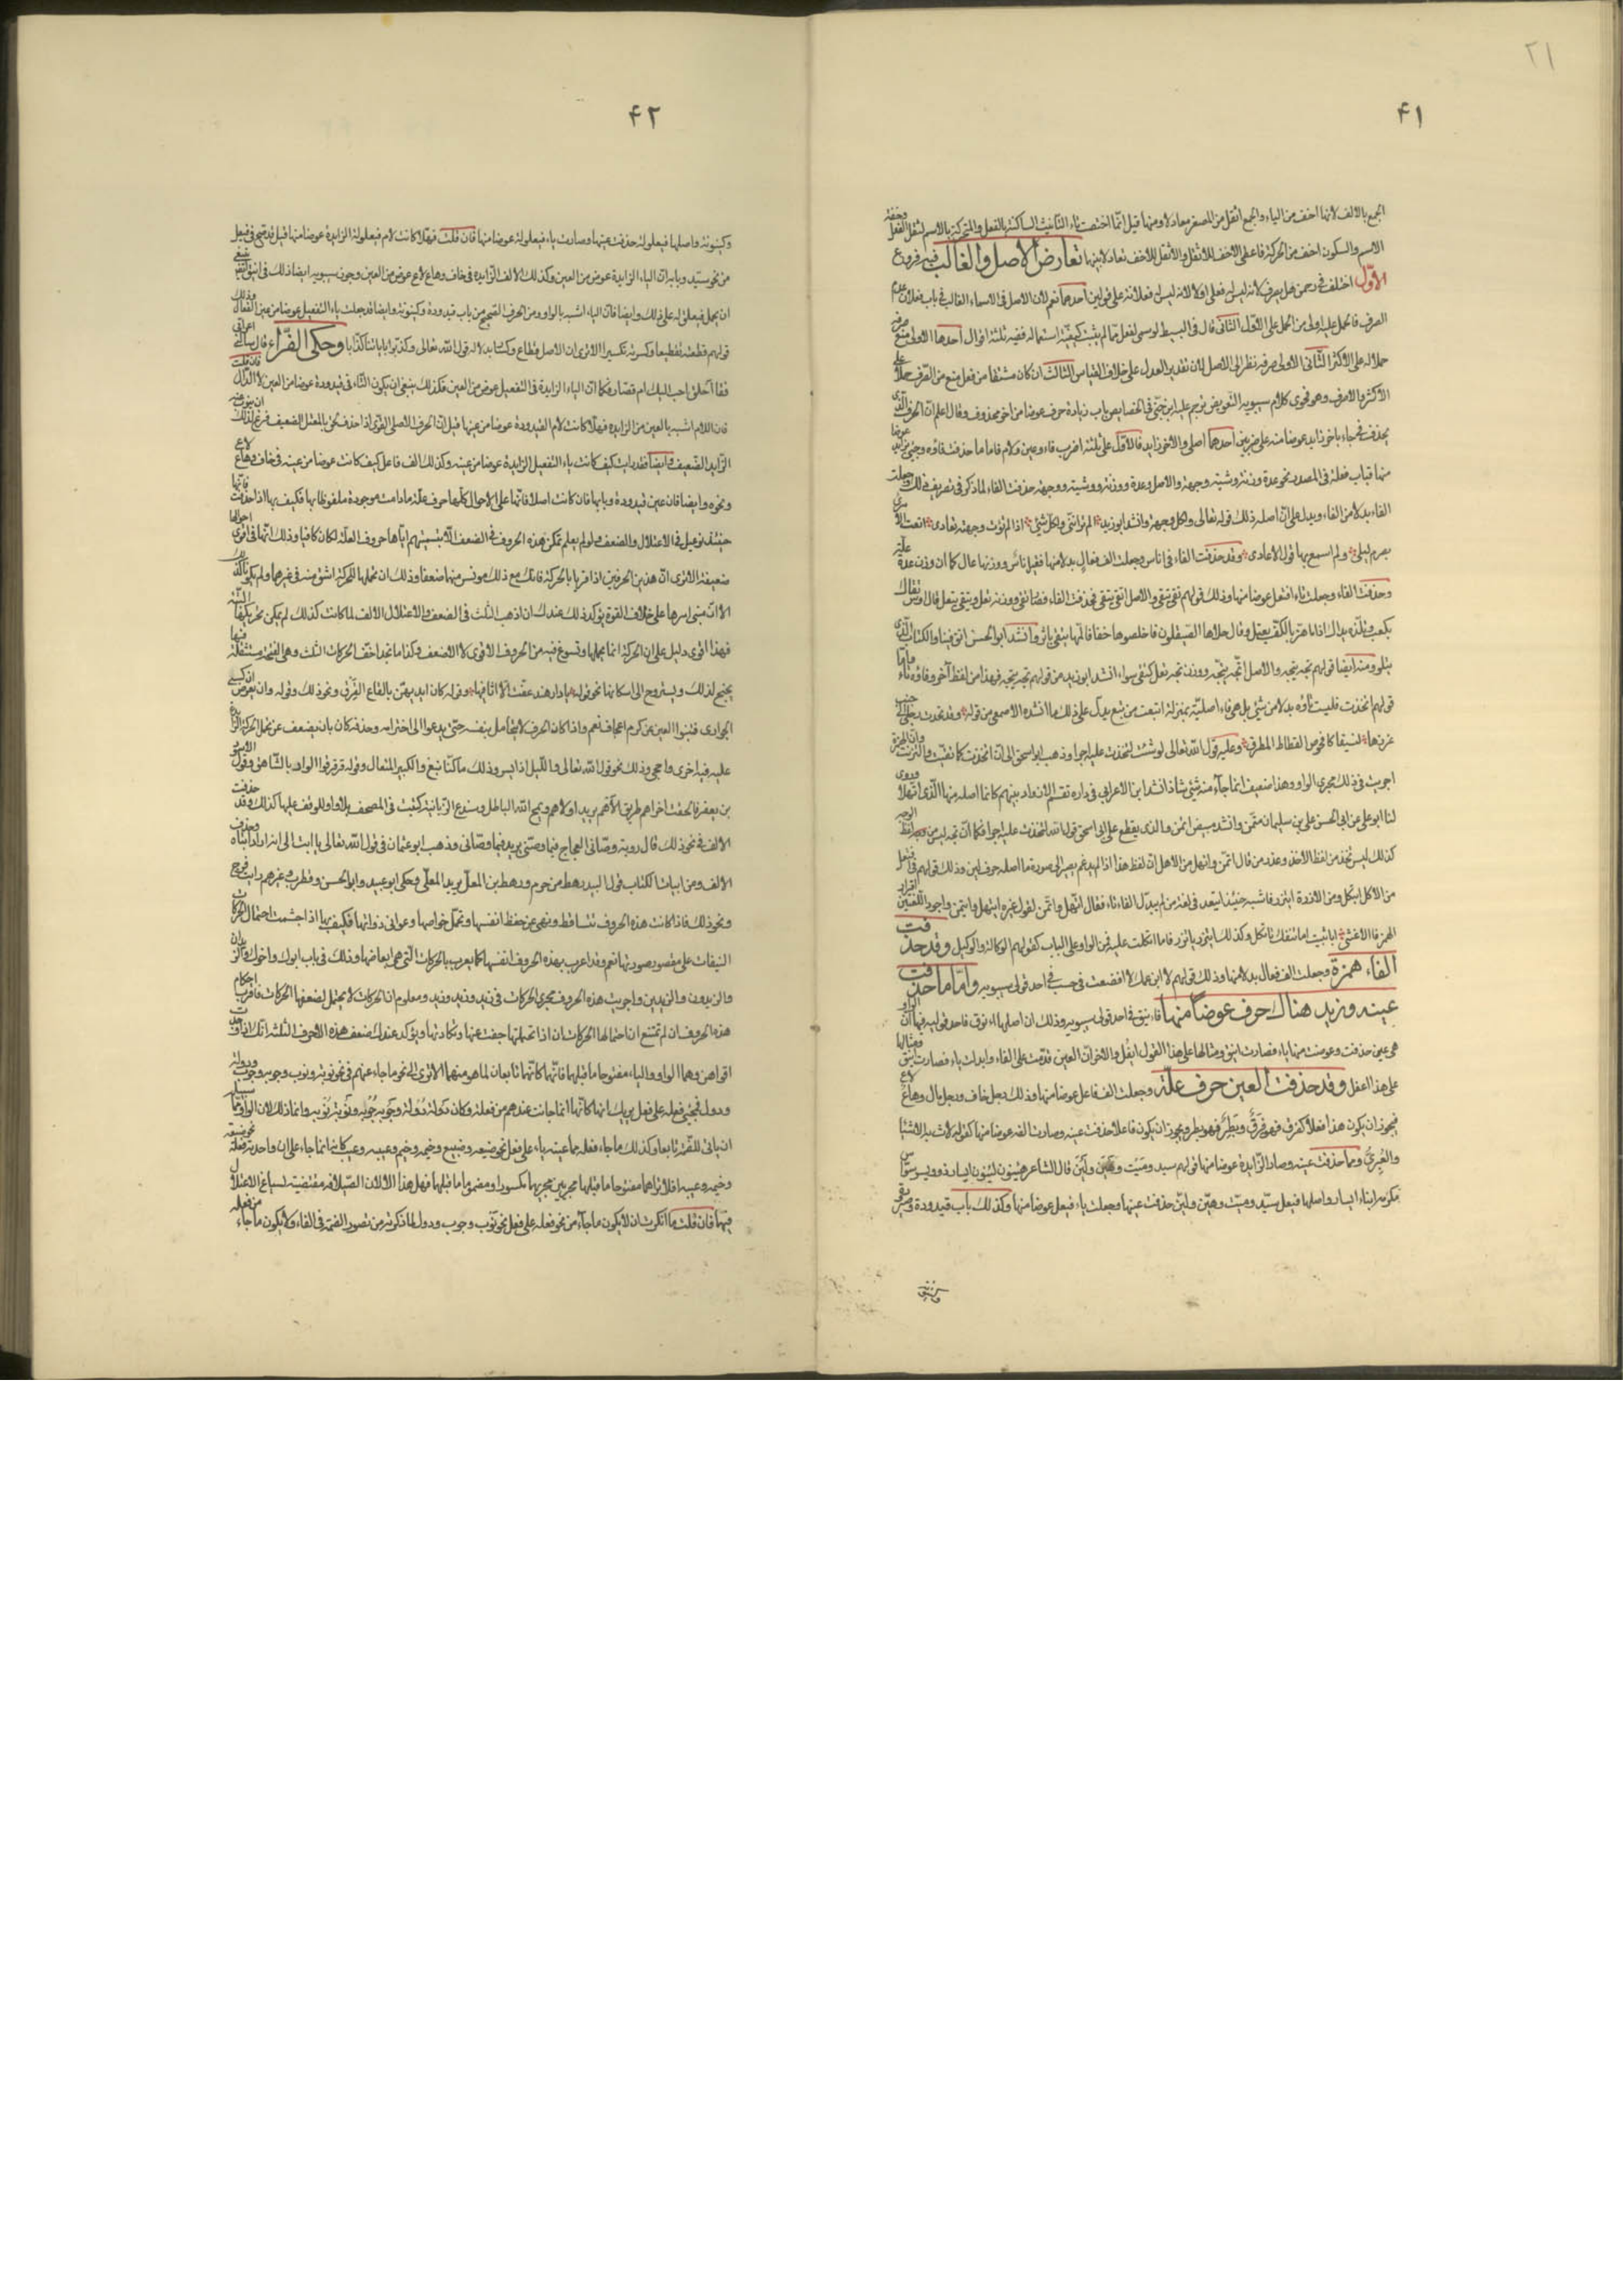 ٢١
٤١
الجمع بالالف لانها اخف من الياء والجمع اثقل من المصغر معادلا ومنها قيل انما اختصت تاء التانيث الساكنة بالفعل والمتحركة بالاسم لثقل الفعل وخفة
الاسم والسكون اخف من الحركة فاعطى الاخف للاثقل والاثقل للاخف تعادلا بينهما تعارض الاصل والغالب فيه فروع
الاوّل اختلف في رحمن هل يصرف لانه ليس له فعلى او لا لانه ليس له فعلانة على قولين احدهما نعم لان الاصل في الاسماء الغالب في باب فعلان عدم
الصرف فالحمل عليه اولى من الحمل على الاوّل الثانى قال في البسيط لو سمى بفعل مما لم يثبت كيفية استعماله ففيه ثلثة اقوال احدها الاولى منع صرفه
حملا له على الاكثر الثانى الاولى صرفه نظرا الى الاصل لان تقدير العدل على خلاف القياس الثالث ان كان مشتقا من فعل منع من الصرف حملا على
الاكثر والا صرف وهو فحوى كلام سيبويه التعويض ترجم عليه ابن جنّى في الخصايص باب زيادة حرف عوضا من اخر محذوف وقال اعلم ان الحرف الذى
يحذف فيجاء باخر زايد عوضا منه على ضربين احدهما اصلى والاخر زايد فالاول على ثلثة اضرب فاء وعين ولام فاما ما حذفت فاؤه وجئ بزايد عوضا
منها فباب فعلة في المصدر نحو عدة وزنة وشية وجهة والاصل وعدة ووزنة ووشية ووجهة حذفت الفاء لما ذكر في تصريف ذلك وجعلت
الفاء بدلا من الفاء ويدل على ان اصله ذلك قوله تعالى ولكل وجهة وانشد ابو زيد الم ترانى ولكل شئ اذا لم تؤت وجهته تعادى اطعت الآمرى
بصرم ليلى ولم اسمع بها قول الاعادى وقد حذفت الفاء في اناس وجعلت الف فعال بدلا منها فقيل ناس ووزنها عال كما ان وزن عدة علة
وحذفت الفاء وجعلت تاء افتعل عوضا منها وذلك قولهم تقى يتقى والاصل اتقى يتقى فحذفت الفاء فصار تقى ووزنه تعل ويتقى يتعل قال اوس تقاك
بكعب وتلذه يداك اذا ما هز بالكف يعسل وقال جلاها الصيقلون فاخلصوها خفافا كلها يتقى باثر وانشد ابو الحسن اتق فينا والكتاب الذى
يتلو ومنه ايضا قولهم تجه يتجه والاصل اتجه يتجه ووزن تجه تعل كتقى سواء انشد ابو زيد من قولهم تجه يتجه فهذا من لفظ آخر وفاؤه تاء فاما
قولهم اتخذت فليست تاؤه بدلا من شئ بل هى فاء اصلية بمنزلة اتبعت من تبع يدل على ذلك ما انشده الاصمعى من قوله وقد تخذت رجلى الى جنب
غرزها نسيفا كافحوص القطاة المطرق وعليه قول الله تعالى لو شئت لتخذت عليه اجرا وذهب ابو اسحق الى ان اتخذت كاتقيت واتزنت وان الهمزة
اجريت في ذلك مجرى الواو وهذا ضعيف انما جاء منه شئ شاذ انشد ابن الاعرابى في داره تقسم الازواد بينهم كانما اهله منها الذى اتهلا وروى
لنا ابو على عن ابى الحسن على بن سليمان متمن وانشد مبيض اتمن والذى يقطع على ابى اسحق قول الله لتخذت عليه اجرا فكما ان تجه ليس من لفظ الوجه
كذلك ليس تخذ من لفظ الاخذ وعذر من قال اتمن واتهل من الاهل ان لفظ هذا اذا لم يدغم يصير الى صورة ما اصله حرف لين وذلك قولهم في افتعل
من الاكل ايتكل ومن الازرة ايتزر فاشبه حينئذ ايتعد في لغة من لم يبدل الفاء تاء فقال اتهل واتمن لقول غيره ايتهل وايتمن واجود اللغتين اقرار
الهمز قال الاعشى ابا ثبيت اما تنفك تاتكل وكذلك ايتزر ياتزر فاما اتكلت عليه فمن الواو على الباب كقولهم الوكالة والوكيل وقد حذفت
الفاء همزة وجعلت الف فعال بدلا منها وذلك قولهم لاه ابن عمك لا افضلت في حسب في احد قولى سيبويه وامّا ما حذفت
عينه وزيد هناك حرف عوضا منها فاينق في احد قولى سيبويه وذلك ان اصلها انوق فاحد قوليه فيها ان الواو
هى عين حذفت وعوضت منها ياء فصارت اينق ومثالها على هذا القول ايفل والاخر ان العين قدمت على الفاء وابدلت ياء فصارت اينق فمثالها
على هذا اعفل وقد حذفت العين حرف علّة وجعلت الف فاعل عوضا منها وذلك رجل خاف ورجل مال وهاع لاع
فيجوز ان يكون هذا فعلا كفرق فهو فرق وبطر فهو بطر ويجوز ان يكون فاعلا حذفت عينه وصارت الفه عوضا منها كقوله لاث به الاشاء
والعبرى ومما حذفت عينه وصار الزايدة عوضا منها قولهم سيد وميت وهين ولين قال الشاعر هينون لينون ايسار ذوو يسر سوّاس
مكرمة ابناء ايسار واصلها فيعل سيّد وميّت وهيّن وليّن حذفت عينها وجعلت ياء فيعل عوضا منها وكذلك باب قيدودة وصيرورة
وكينونة
٤٢
وكينونة واصلها فيعلولة حذفت عينها وصارت ياء فيعلولة عوضا منها فان قلت فهلا كانت لام فيعلولة الزايدة عوضا منها قيل قد صح في فيعل
من نحو سيّد وبابه ان الياء الزايدة عوض من العين وكذلك الالف الزايدة في خاف وهاع لاع عوض من العين وجوز سيبويه ايضا ذلك في اينق فينبغى
ان يحمل فيعلولة على ذلك وايضا فان الياء اشبه بالواو من الحرف الصحيح من باب قيدودة وكينونة وايضا فقد جعلت ياء التفعيل عوضا من عين الفعال وذلك
قولهم قطعته تقطيعا وكسرته تكسيرا الا ترى ان الاصل قطاع وكسار بدلالة قول الله تعالى وكذبوا باياتنا كذابا وحكى الفرّاء قال سالنى اعرابى
فقال احلق احب اليك ام قصار فكما ان الياء الزايدة في التفعيل عوض من العين فكذلك ينبغى ان يكون الياء في قيدودة عوضا من العين لا الدال فان قلت
فان اللام اشبه بالعين من الزايد فهلا كانت لام القيدودة عوضا من عينها قيل ان الحرف الاصلى القوى اذا حذف لحق بالمعتل الضعيف فساغ لذلك ان ينوب عنه
الزايد الضعيف وايضا فقد رايت كيف كانت ياء التفعيل الزايدة عوضا من عينه وكذلك الف فاعل كيف كانت عوضا من عينه في خاف وهاع لاع
ونحوه وايضا فان عين قيدودة وبابها فان كانت اصلا فانها على الاحوال كلها حرف علة ما دامت موجودة ملفوظا بها فكيف بها اذا حذفت فانها
حينئذ توغل في الاعتلال والضعف ولو لم يعلم تمكن هذه الحروف في الضعف الا بتسميتهم اياها حروف العلة لكان كافيا وذلك انها في اقوى احوالها
ضعيفة الا ترى ان هذين الحرفين اذا قويا بالحركة فانك مع ذلك مونس منهما ضعفا وذلك ان تحملهما للحركة اشق منه في غيرهما ولم يكونا كذلك
الا ان مبنى امرهما على خلاف القوة يؤكد ذلك عندك ان اذهب الثلث في الضعف والاعتلال الالف لما كانت كذلك لم يمكن تحريكها البتة
فهذا اقوى دليل على ان الحركة انما يحملها وتسوغ فيه من الحروف الاقوى لا الاضعف ولذلك ما تجد اخف الحركات الثلث وهى الفتحة مستثقلة فيهما
يجنح لذلك ويستروح الى اسكانها نحو قوله يا دار هند عفت الا اثافيها وقوله كان ايديهن بالقاع القرق ونحو ذلك وقوله وان يعرين ان كسى
الجوارى فتنبوا العين عن كرم عجاف نعم واذا كان الحرف لا يتحامل بنفسه حتى يدعوا الى اخترامه وحذفه كان بان يضعف عن تحمل الحركة الزايدة
عليه فيه احرى واحجى وذلك نحو قول الله تعالى والليل اذا يسر وذلك ما كنا نبغ والكبير المتعال وقوله قرقر قمر الواد بالشاهق وقول الاسود
بن يعفر فالحقت اخراهم طريق الاهم يريد اولاهم ويمح الله الباطل وسندع الزبانية كتبت في المصحف بلا واو للوقف عليها كذلك وقد حذفت
الالف في نحو ذلك قال روبة وصانى العجاج فيما وصنى يريد فيما وصانى وذهب ابو عثمان في قول الله تعالى يا ابت الى انه اراد يا ابتاه وحذف
الالف ومن ابيات الكتاب قول لبيد رهط مرجوم ورهط ابن المعل يريد المعلى وحكى ابو عبيد وابو الحسن وقطرب وغيرهم رايت فرج
ونحو ذلك فاذا كانت هذه الحروف تتساقط وتهى عن حفظ انفسها وتحمل خواصها وعوانى ذواتها فكيف بها اذا جشمت احتمال الحركات
النيفات على مقصور صورتها نعم وقد اعرب بهذه الحروف انفسها كما يعرب بالحركات التى هى ابعاضها وذلك في باب ابوك واخوك والزيدان
والزيدون والزيدين واجريت هذه الحروف مجرى الحركات في زيد وزيد وزيد ومعلوم ان الحركات لا تحتمل لضعفها الحركات فاقرب احكام
هذه الحروف ان لم تمتنع ان احتمالها الحركات ان اذا تحملتها جفت عنها وتكاءدتها ويؤكد عندك ضعف هذه الاحرف الثلثة انك اذا وجدت
اقواهن وهما الواو والياء مفتوحا ما قبلهما فانهما كانهما تابعان لما هو منهما الا ترى الى نحو ما جاء عنهم في نحو نوبة ونوب وجوبة وجوب ودولة
ودول فمجئ فعلة على فعل يريك انها كانها انما جاءت عندهم من فعلة وكان دولة دولة وجوبة جوبة ونوبة نوبة وانما ذلك لان الواو مما سبيله
ان ياتى للضمة تابعا وكذلك ما جاء فعلة مما عينه ياء على فعل نحو ضيعة وضيع وخيمة وخيم وعيبة وعيب كانه انما جاء على ان واحدته فعلة نحو ضيعة
وخيمة وعيبة افلا تراهما مفتوحا ما قبلهما مجريين مجريهما مكسورا ومضموما ما قبلهما فهل هذا الا لان الصلافة مقتضية لسياغ الاعتلال
فيهما فان قلت ما انكرت ان لا يكون ما جاء من نحو فعلة على فعل نحو نوب وجوب ودول لما ذكرته من تصور الضمة في الفاء ولا يكون ما جاء من فعلة